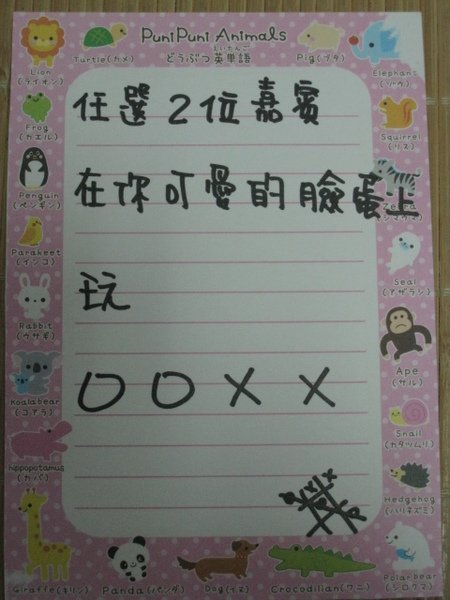 PuniPuni Animals
どうぶつ英単語
えいたんご
Lion
(ライオン)
Turtle(カメ)
Pig(ブタ)
Elephant
(ゾウ)
Frog
(カエル)
Squirrel
(リス)
Penguin
(ペンギン)
Zebra
(シマウマ)
Parakeet
(インコ)
Seal
(アザラシ)
Rabbit
(ウサギ)
Ape
(サル)
Koalabear
(コアラ)
Snail
(カタツムリ)
hippopotamus
(カバ)
Hedgehog
(ハリネズミ)
Giraffe(キリン)
Panda(パンダ)
Dog(イヌ)
Crocodilian(ワニ)
Polarbear
(シロクマ)
任選2位嘉賓
在你可愛的臉蛋上
玩
OOXX